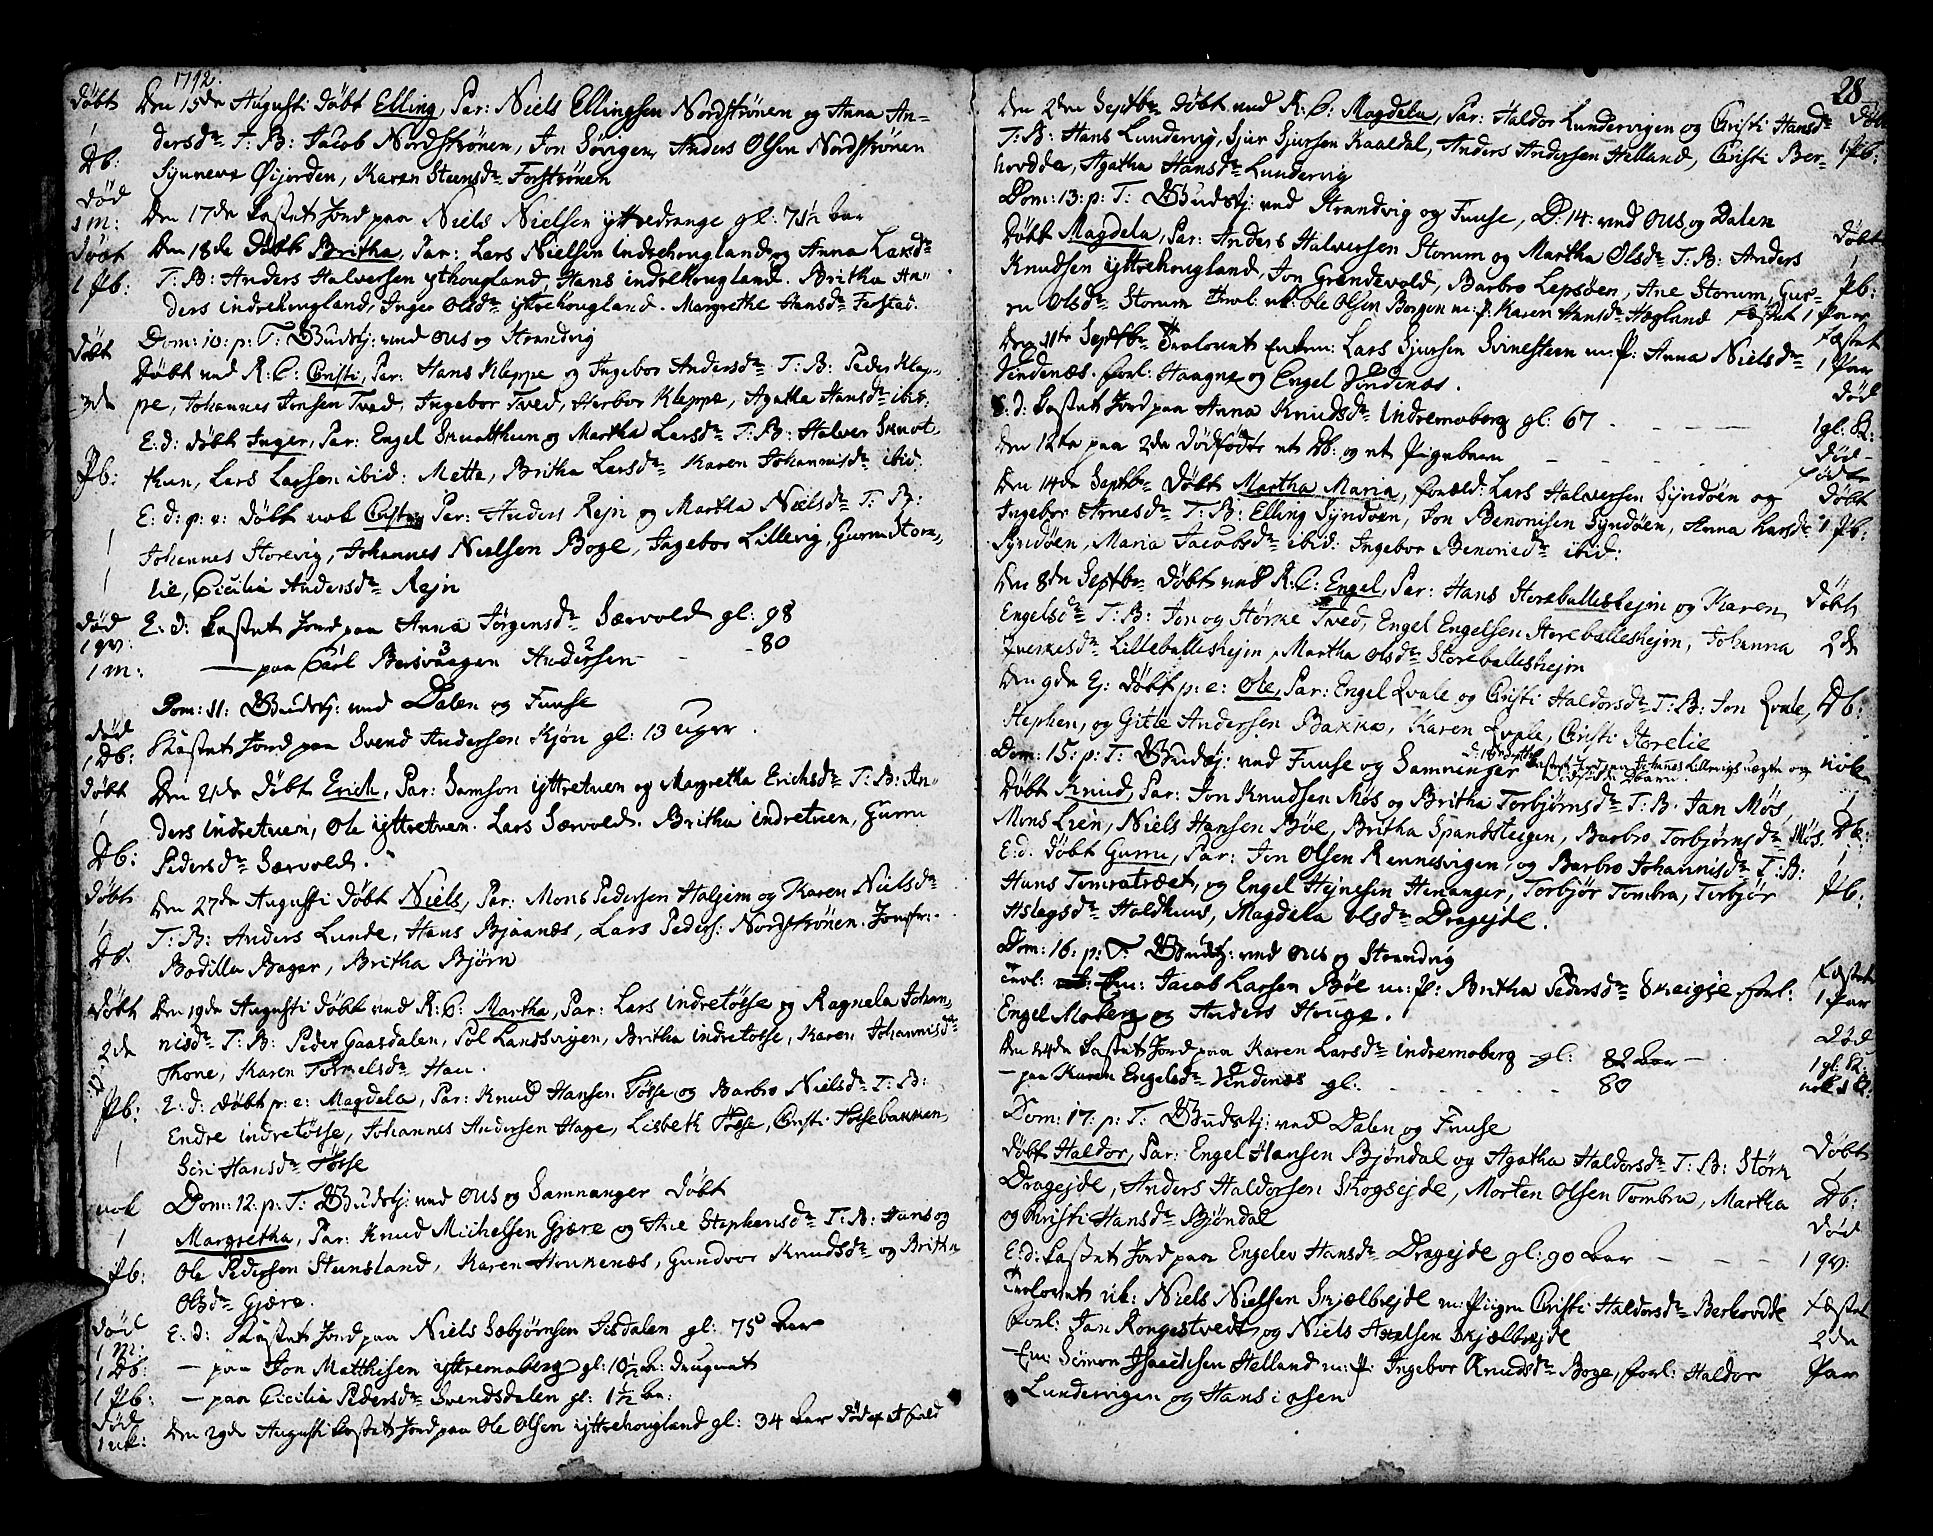 1792.
døbt Den 15de Augusti døbt Elling, Par: Niels Ellingsen Nordstrønen og Anna An-
1 dersdr T: B: Jacob Nordstrønen, Jon Sørigen, Anders Olsen Nordstrønen
Db: Synneve Øijorden, Karen Steensdr Forstrønen
død
1 m: Den 17de kastet Jord paa Niels Nielsen yttredrange gl: 71½ Aar
døbt Den 18de døbt Britha, Par: Lars Nielsen indrehougland og Anna Larsdr
1 Pb: T: B: Anders Halversen ythougland, Hans indrehougland. Britha An-
ders indrehougland, Inger Olsdr yttrehougland. Margrethe Hansdr Ferstad.
Dom: 10: p: T: Gudstj: ved ous og Strandvig
døbt Døbt ved K: C: Christi, Par: Hans Kleppe og Ingebor Andersdr T: B: Peder Klep-
3de pe, Johannes Jonsen Tved, Ingebor Tved, Herbor Kleppe, Agatha Hansdr ibid.
E: d: døbt Inger, Par: Engel Skuathun og Martha Larsdr T: B: Halver Skuat-
Pb: hun, Lars Larsen ibid: Mette, Britha Larsdr Karen Johannisdr ibid.
E: d: p: e: døbt nok Par: Anders Rejn og Martha Nielsdr T: B:
1 Johannes Storevig, Johannes Nielsen Boge, Ingebor Lillevig, Guru Store-
1 lie, Cicilia Andersdr Rejn
død E: d: kastet Jord paa Anna Jørgensdr Særvold gl: 98
1 qv:
1 m: — paa Carl Bersvaagen Andersen - - 80
Dom: 11: Gudstj: ved Dalen og Fuuse
død
1 Db: Kastet Jord paa Svend Andersen Kjøn gl: 13 uger.
døbt Den 21de døbt Erich, Par: Samson yttretuen og Margretha Erichsdr T: B: An-
1 ders indretuen, Ole yttretuen. Lars Særvold. Britha indretuen, Guru
Db: Pedersdr Særvold.
døbt Den 27de Augusti døbt Niels, Par: Mons Pedersen Haljem og Karen Nielsdr
1 T: B: Anders Lunde, Hans Bjaanæs, Lars Peders: Nordstrønen. Jomfr:
Db. Bodilla Bager, Britha Bjørn
døbt Den 19de Augusti døbt ved K: C: Martha, Par: Lars indretøsse og Ragnela Johan-
2de nisdr T: B: Peder Gaasdalen, Pol Landsvigen, Britha indretøsse, Karen Johannisdr
Thone, Karen Tormelsdr Hau.
Pb: E: d: døbt p: e: Magdela, Par: Knud Hansen Tøsse og Barbro Nielsdr T: B:
1 Endre indretøsse, Johannes Andersen Hage, Lisbeth Tøsse, Christi Tøssebakken,
Siri Hansdr Tøsse
nok Dom: 12: p: T: Gudstj: ved ous og Samnanger døbt
1 Margretha, Par: Knud Michelsen Gjære og Ane Stephensdr T: B: Hans og
Pb: Ole Pedersen Stensland, Karen Houkenæs, Gundvor Knudsdr og Britha
Olsdr Gjære.
død E: d: Kastet Jord paa Niels Sebjørnsen Jisdalen gl: 75 Aar
1 m:
1 Db: — paa Jon Matthisen yttremoberg gl: 10½ Ar:
1 Pb: — paa Cicilia Pedersdr Svendsdalen gl: 1½ Ar:
død
1 uk: Den 29de Augusti kastet Jord paa Ole Olsen yttrehougland gl: 34 Aar død af et fald
28
Den 2den Septbr døbt ved K: C: Magdela, Par: Haldor Lundervigen og Christi Hansdr døbt
T: B: Hans Lundervig, Sjur Sjursen Kaaldal, Anders Andersen Helland, Christi Ber- 1 Pb:
hovdda, Agatha Hansdr Lundervig
Dom: 13: p: T: Gudstj: ved Strandvig og Fuuse, D. 14: ved ous og Dalen
Døbt Magdela, Par: Anders Halversen Storum og Martha Olsdr T: B: Anders døbt
Knudsen yttrehougland, Jon Grøndevold, Barbro Lepsøen, Ane Storum, Gur- 1
ru Olsdr Storum Trol: uk: Ole Olsen Borgen m: p: Karen Hansdr Hægland Pb: fæstet 1 Par
Den 11te Septbr Trolovet Enkem: Lars Sjursen Svinestuen m: P: Anna Nielsdr fæstet
Vindenæs. forl: Haagne og Engel Vindenæs. 1 Par
E. d: kastet Jord paa Anna Knudsdr indremoberg gl: 67 død
1 gl: K:
Den 12te paa 2de dødfødte et Db: og et Pigebarn — død-
fødte
Den 14de Septbr døbt Martha Maria, foræld: Lars Halversen Syndøen og døbt
Ingebor Arnesdr T: B: Elling Syndøen, Jon Benonisen Syndøen, Anna Larsdr 1 Pb:
Syndøen, Maria Jacobsdr ibid: Ingebor Benonisdr ibid:
Den 8de Septbr døbt ved K: C: Engel, Par: Hans Storeballeshejm og Karen døbt
Engelsdr T: B: Jon og Størke Tved, Engel Engelsen Storeballeshejm, Johanna 2de
Lilleballeshejm, Martha Olsdr Storeballeshejm
Den 9de Ej: døbt p: e: Ole, Par: Engel Qvale og Christi Haldorsdr T: B: Jon Qvale, Db:
Stephen, og Gitle Andersen Bakke, Karen Qvale, Christi Storelie
Dom: 15: p: T: Gudstj: ved Fuuse og Samninger
Kastet Jord paa Johannes Lillevigs ægte og Db barn. nok
Døbt Knud, Par: Jon Knudsen Møs og Britha Torbjørnsdr T: B. Jan Møs, 1
Mons Lien, Niels Hansen Bøe, Britha Spandsteigen, Barbro Torbjørnsdr Møs. Db:
E: d. døbt Gurru, Par: Jon Olsen Rennesvigen, og Barbro Johannisdr T: B: 1
Hans Temratræet, og Engel Hejnesen Henanger, Torbjør Tombra, Torbjør Pb:
Aslagsdr Haldhuus, Magdela olsdr Dragejde.
Dom: 16: p: T: Gudstj: ved ous og Strandvig
Trol: Em: Jacob Larsen Bøe m: P: Britha Pedersdr Skeigje forl: fæstet
Engel Moberg og Anders Houge. 1 Par
Den 24de kastet Jord paa Karen Larsdr indremoberg gl: 82 Aar — død
1 gl: K:
— paa Karen Engelsdr Vindenæs gl: - - 80 nok 1 K:
Dom: 17: p: T: Gudstj: ved Dalen og Fuuse
Døbt Haldor, Par: Engel Hansen Bjøndal og Agatha Haldorsdr T: B: Størk døbt
Dragejde, Anders Haldorsen Skogsejde, Morten Olsen Tombra, Martha 1 Db:
og Christi Hansdr Bjøndal død
E: d: kastet Jord paa Engelev Hansdr Dragejde gl: 90 Aar — 1 qv:
Trolovet uk: Niels Nielsen Skjælbrejde m: Pigen Christi Haldorsdr Berhovdde fæstet
forl: Jan Rongestvedt, og Niels Axelsen Skjælbrejde 2de
Em: Simon Isaachsen Helland m: P: Ingebor Knudsdr Boge, forl: Haldor Par
Lundervigen og Hans i osen